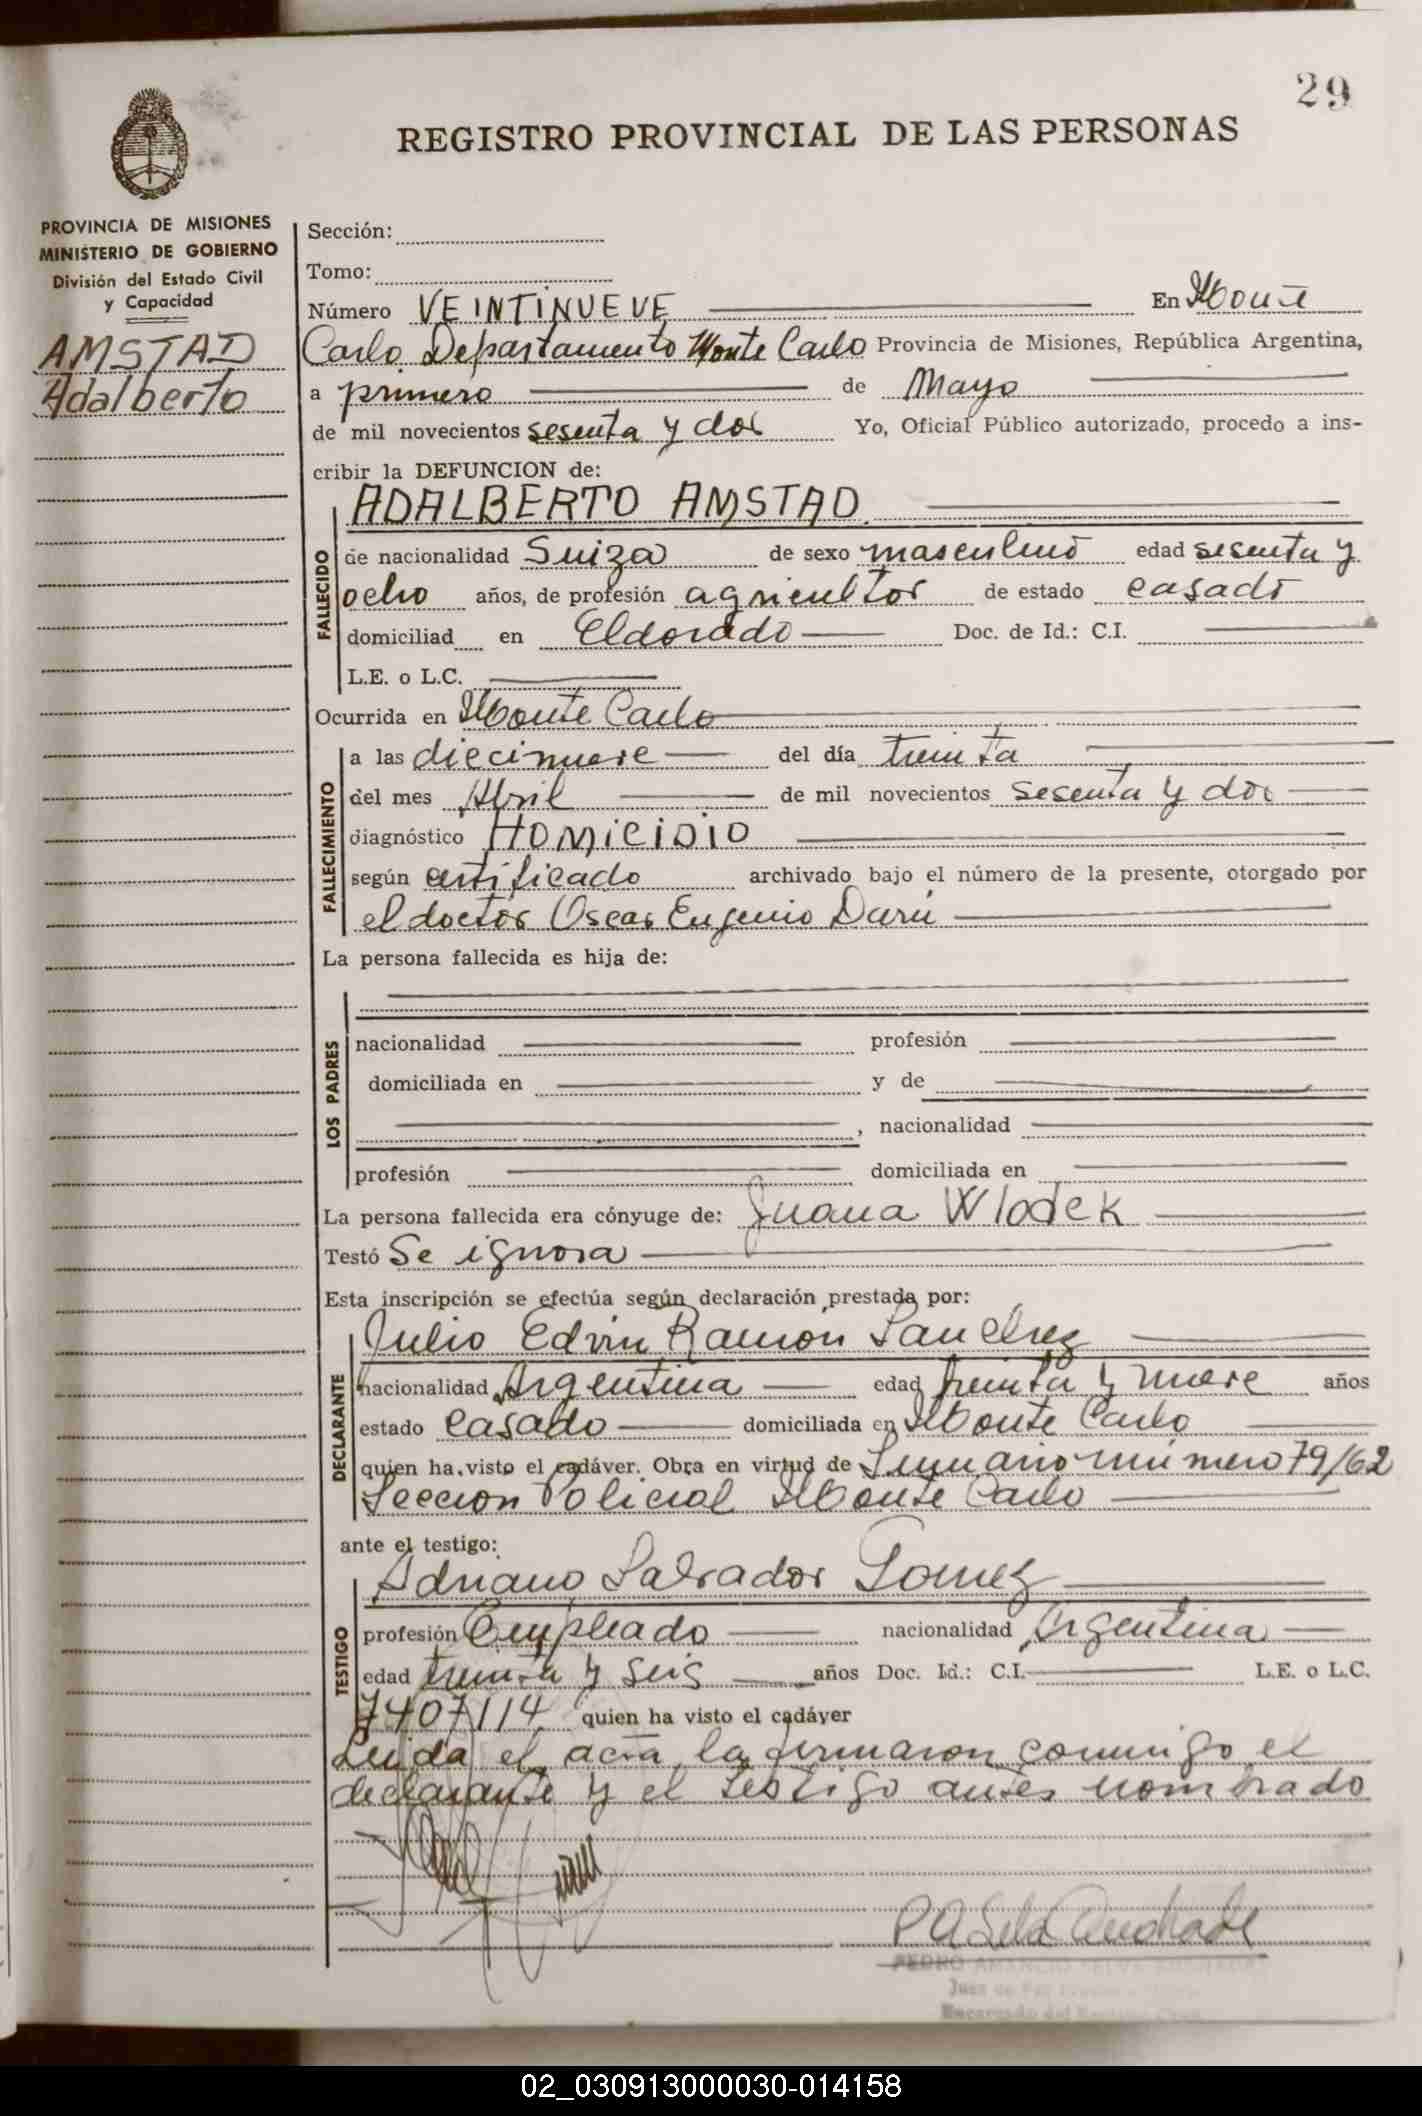 29
REGISTRO PROVINCIAL DE LAS PERSONAS
PROVINCIA DE MISIONES
MINISTERIO DE GOBIERNO
División del Estado Civil
y Capacidad
AMSTAD
Adalberto
Sección:
Tomo:
Número VEINTINUEVE En Monte
Carlo Departamento Monte Carlo Provincia de Misiones, República Argentina,
a primero de Mayo
de mil novecientos sesenta y dos Yo, Oficial Público autorizado, procedo a ins-
cribir la DEFUNCION de:
ADALBERTO AMSTAD
FALLECIDO
de nacionalidad Suiza de sexo masculino edad sesenta y
ocho años, de profesión agricultor de estado casado
domiciliad en Eldorado Doc. de Id.: C.I.
L.E. o L.C.
Ocurrida en Monte Carlo
FALLECIMIENTO
a las diecinueve del día treinta
del mes Abril de mil novecientos sesenta y dos
diagnóstico HOMICIDIO
según certificado archivado bajo el número de la presente, otorgado por
el doctor Oscar Eugenio Darú
La persona fallecida es hija de:
LOS PADRES
nacionalidad profesión
domiciliada en y de
, nacionalidad
profesión domiciliada en
La persona fallecida era cónyuge de: Juana Wlodek
Testó Se ignora
Esta inscripción se efectúa según declaración prestada por:
DECLARANTE
Julio Edvin Ramón Sanchez
nacionalidad Argentina edad treinta y nueve años
estado casado domiciliada en Monte Carlo
quien ha visto el cadáver. Obra en virtud de Sumario número 79/62
Seccion Policial Monte Carlo
ante el testigo:
TESTIGO
Adriano Salvador Gomez
profesión Empleado nacionalidad Argentina
edad treinta y seis años Doc. Id.: C.I. L.E. o L.C.
7407114 quien ha visto el cadáver
Leida el acta la firmaron conmigo el
declarante y el testigo antes nombrado
PA Selva Andrade
PEDRO AMANCIO SELVA ANDRADE
Juez de Paz
Encargado del
02_030913000030-014158